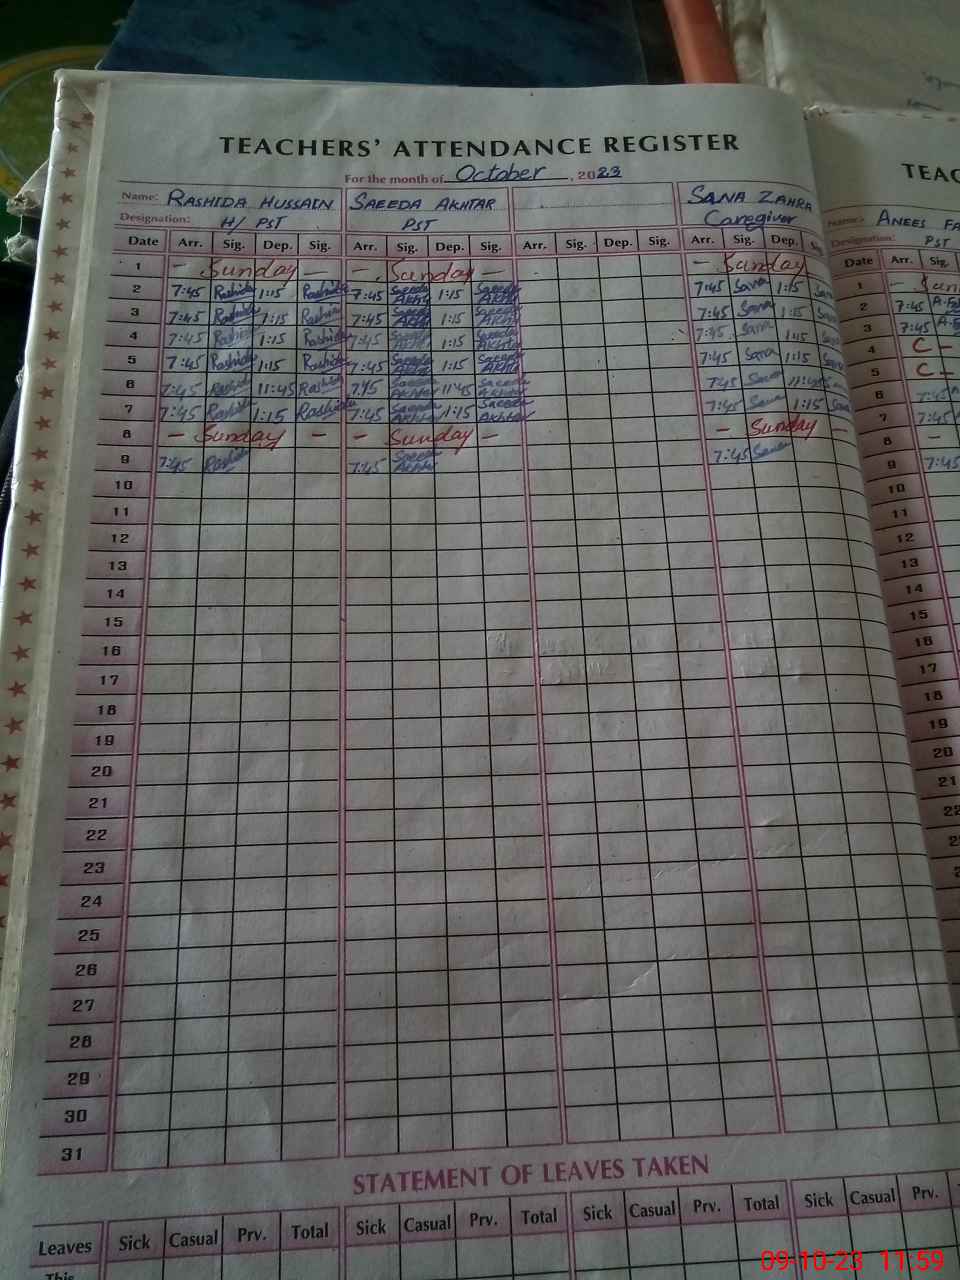 TEACHERS' ATTENDANCE REGISTER
For the month of October, 2023
Name: RASHIDA HUSSAIN SAEEDA AKHTAR SANA ZAHRA
Designation: H/ PST PST Caregiver
Date Arr. Sig. Dep. Sig. Arr. Sig. Dep. Sig. Arr. Sig. Dep. Sig. Arr. Sig. Dep.
1 - Sunday - - Sunday - - Sunday
2 7:45 Rashida 1:15 Rashida 7:45 Saeeda Akhtar 1:15 Saeeda Akhtar 7:45 Sana 1:15 Sana
3 7:45 Rashida 1:15 Rashida 7:45 Saeeda Akhtar 1:15 Saeeda Akhtar 7:45 Sana 1:15 Sana
4 7:45 Rashida 1:15 Rashida 7:45 Saeeda Akhtar 1:15 Saeeda Akhtar 7:45 Sana 1:15 Sana
5 7:45 Rashida 1:15 Rashida 7:45 Saeeda Akhtar 1:15 Saeeda Akhtar 7:45 Sana 1:15 Sana
6 7:45 Rashida 11:45 Rashida 7:45 Saeeda Akhtar 11:45 Saeeda Akhtar 7:45 Sana 11:45
7 7:45 Rashida 1:15 Rashida 7:45 Saeeda Akhtar 1:15 Saeeda Akhtar 7:45 Sana 1:15 Sana
8 - Sunday - - Sunday - - Sunday
9 7:45 Rashida 7:45 Saeeda Akhtar 7:45 Sana
10
11
12
13
14
15
16
17
18
19
20
21
22
23
24
25
26
27
28
29
30
31
STATEMENT OF LEAVES TAKEN
Leaves Sick Casual Prv. Total Sick Casual Prv. Total Sick Casual Prv. Total Sick Casual Prv.
This
Name: ANEES
Designation: PST
Date Arr. Sig.
1 -
2 7:45
3 7:45
4 C -
5 C -
6 7:45
7 7:45
8 -
9 7:45
10
11
12
13
14
15
16
17
18
19
20
21
22
09-10-23 11:59